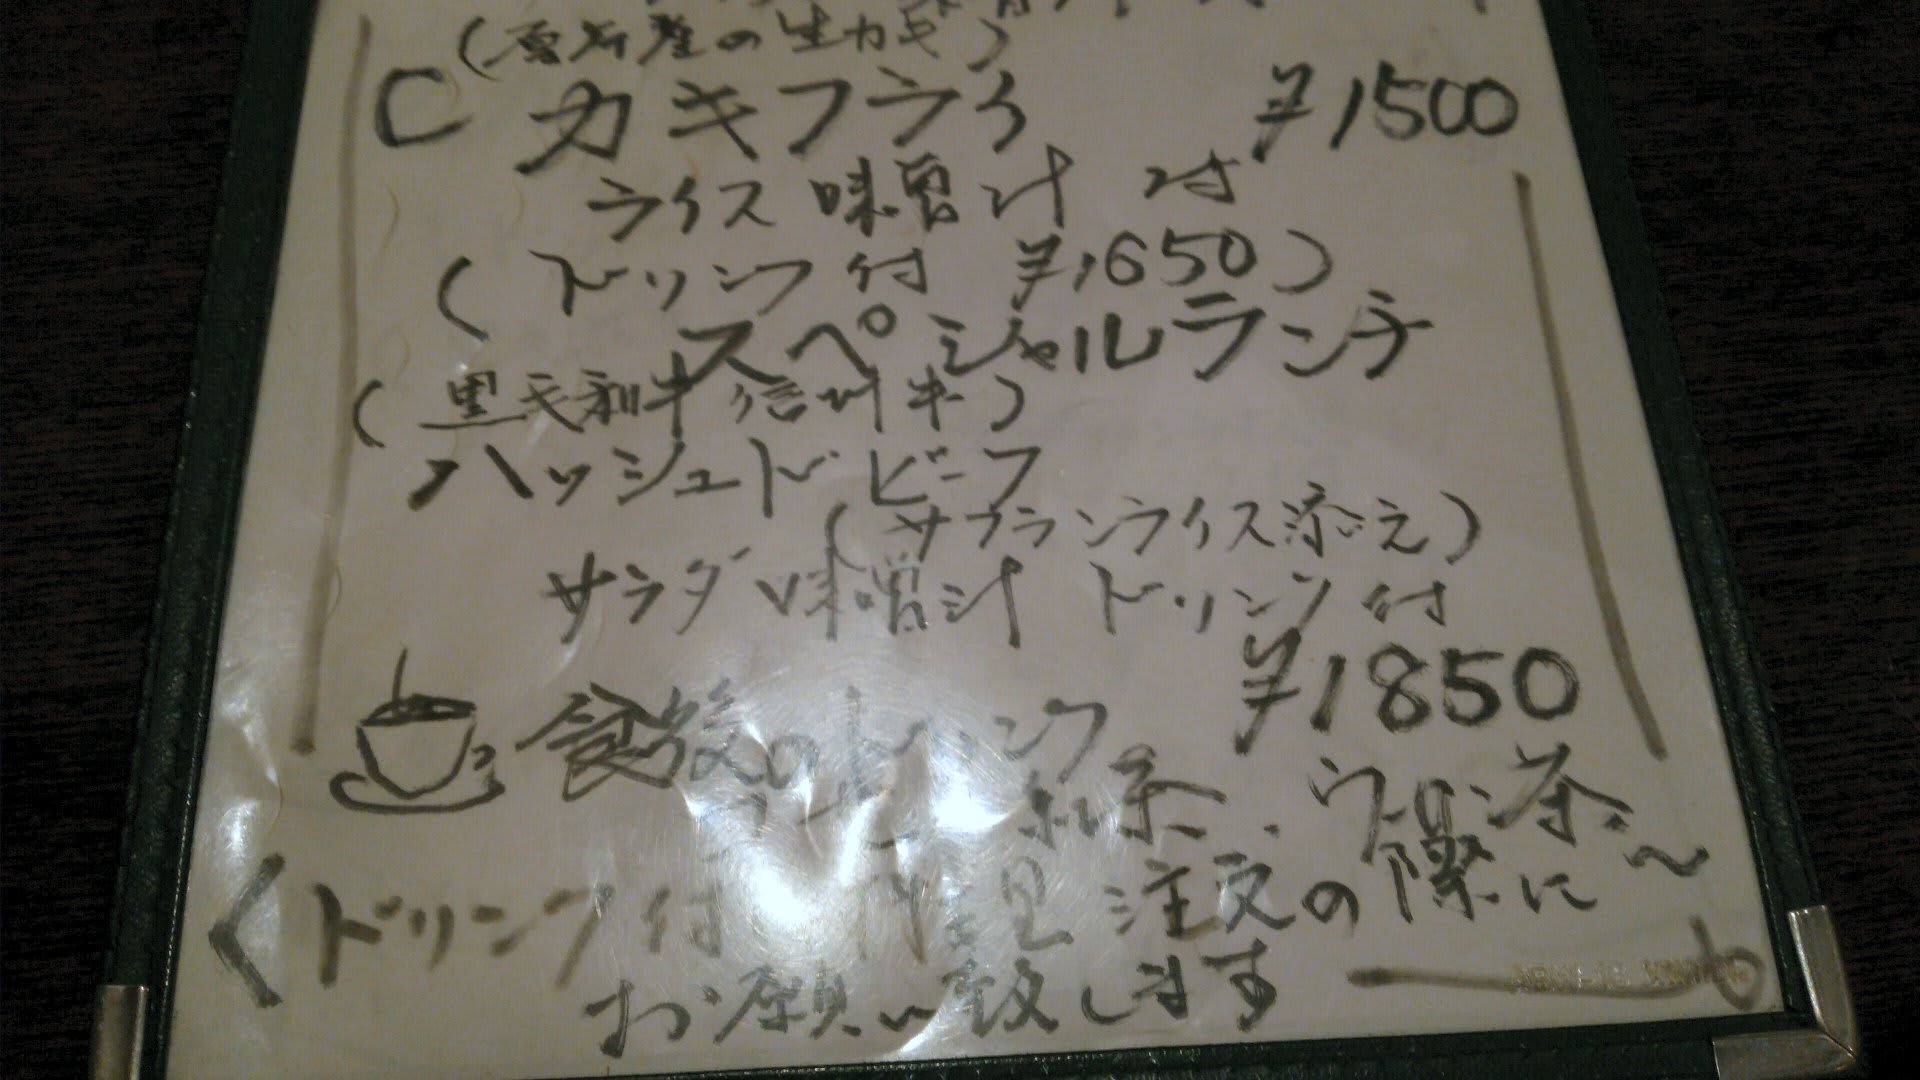 産の生カキ)
C カキフライ ¥1500
ライス 味噌汁 付
(ドリンク付 ¥1,650)
スペシャルランチ
(黒毛和牛 信州牛)
ハッシュドビーフ
(サフランライス添え)
サラダ 味噌汁 ドリンク付
¥1850
食後のドリンク
紅茶.ウーロン茶
<ドリンク付 料理注文の際に〜
お願い致します